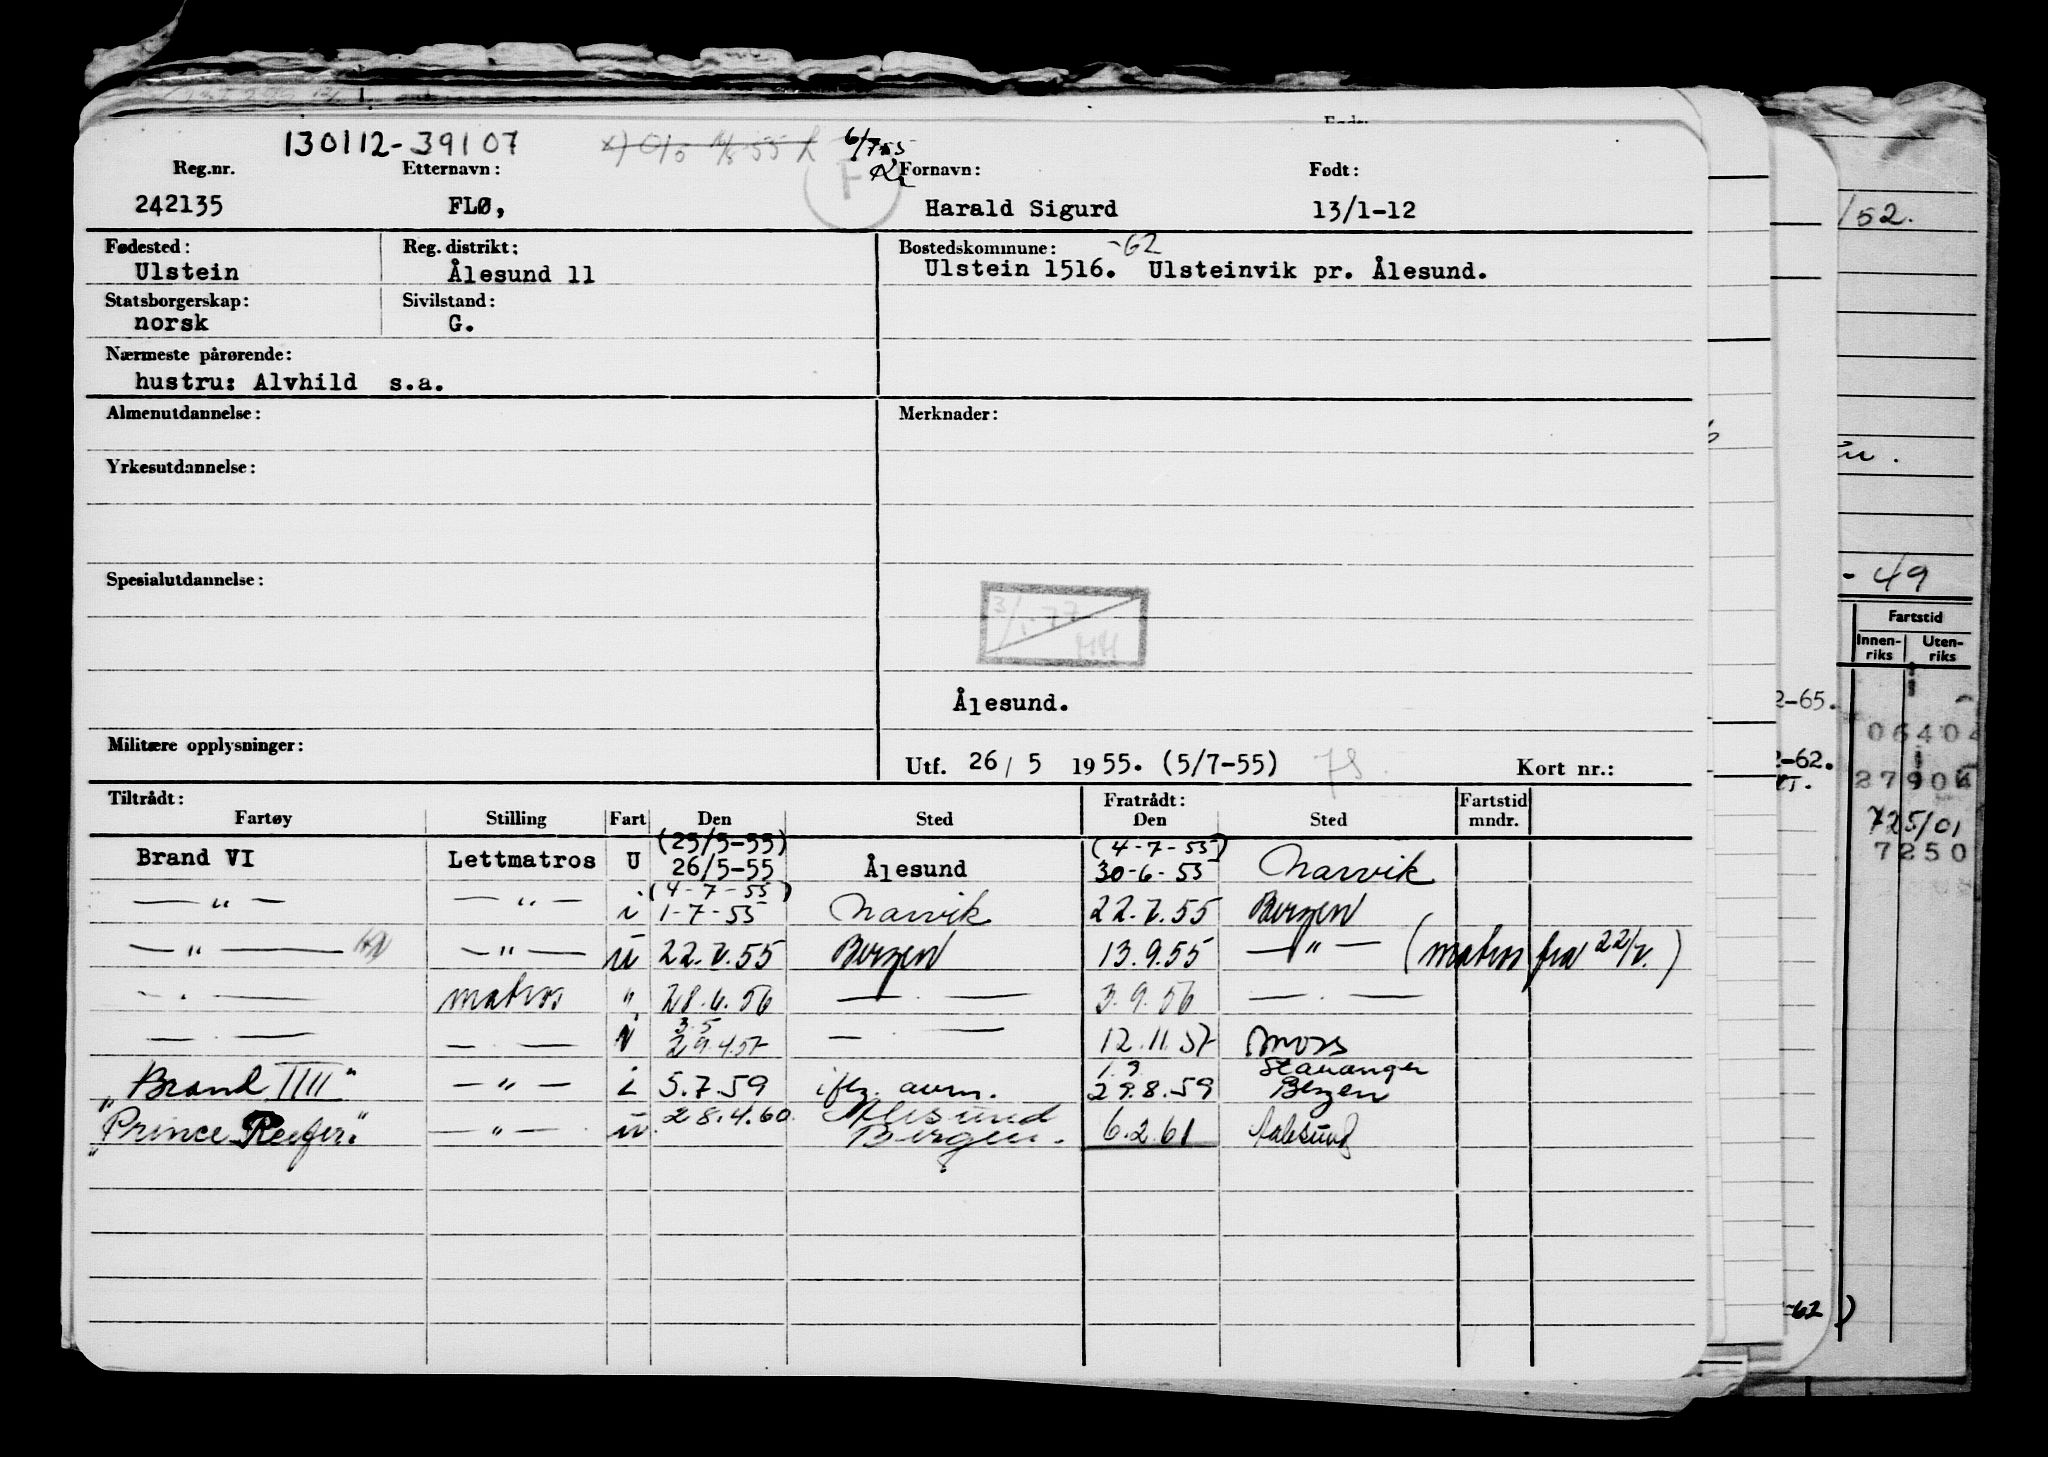 130112-39107 6/7-55
Reg.nr. Etternavn: F Fornavn: Født:
242135 FLØ, Harald Sigurd 13/1-12
Fødested: Reg. distrikt: Bostedskommune: -62
Ulstein Ålesund 11 Ulstein 1516. Ulsteinvik pr. Ålesund.
Statsborgerskap: Sivilstand:
norsk G.
Nærmeste pårørende:
hustru: Alvhild s.a.
Almenutdannelse: Merknader:
Yrkesutdannelse:
Spesialutdannelse:
3/1-77
HH
Ålesund.
Militære opplysninger:
Utf. 26/5 1955. (5/7-55) Kort nr.:
Tiltrådt: Fratrådt: Fartstid
Fartøy Stilling Fart Den Sted Den Sted mndr.
(25/5-55) (4-7-55)
Brand VI Lettmatros U 26/5-55 Ålesund 30-6-55 Narvik
(4-7-55)
—"— —"— i 1-7-55 Narvik 22.7.55 Bergen
—"— —"— u 22.7.55 Bergen 13.9.55 —"— (matros fra 22/7.)
—.— matros " 28.6.56 —.— 3.9.56 —.—
3.5
—.— —.— 29.4.57 —.— 12.11.57 Moss
1.9 Stavanger
"Brand IIII" —"— i 5.7.59 iflg. avm. 29.8.59 Bergen
28.4.60. Ålesund
"Prince Reefer." —"— u. Bergen. 6.2.61 Aalesund
/52.
- 49
Fartstid
Innen-riks Uten-riks
2-65.
2-62.
27904
725/01
7250
-62 )